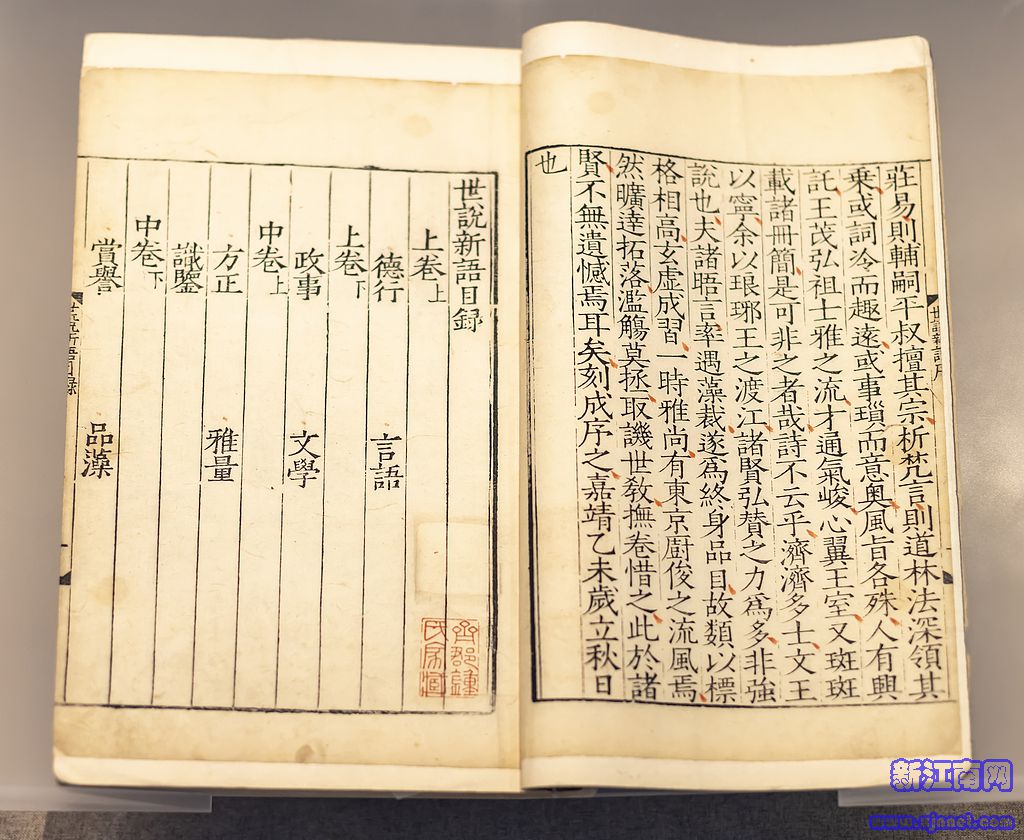 莊易則輔嗣平叔擅其宗析梵言則道林法深領其
乗或詞冷而趣逺或事瑣而意奥風旨各殊人有興
託王茂弘祖士雅之流才通氣峻心翼王室又斑斑
載諸冊簡是可非之者哉詩不云乎濟濟多士文王
以寧余以琅琊王之渡江諸賢弘賛之力為多非強
說也夫諸晤言率遇藻裁遂為終身品目故類以標
格相高玄虛成習一時雅尚有東京厨俊之流風焉
然曠達拓落濫觴莫拯取譏世教撫卷惜之此於諸
賢不無遺憾焉耳矣刻成序之嘉靖乙未歲立秋日
也
世說新語目録
上卷上
德行 言語
上卷下
政事 文學
中卷上
方正 雅量
識鑒
中卷下
賞譽 品藻
世說新語目録
新江南网